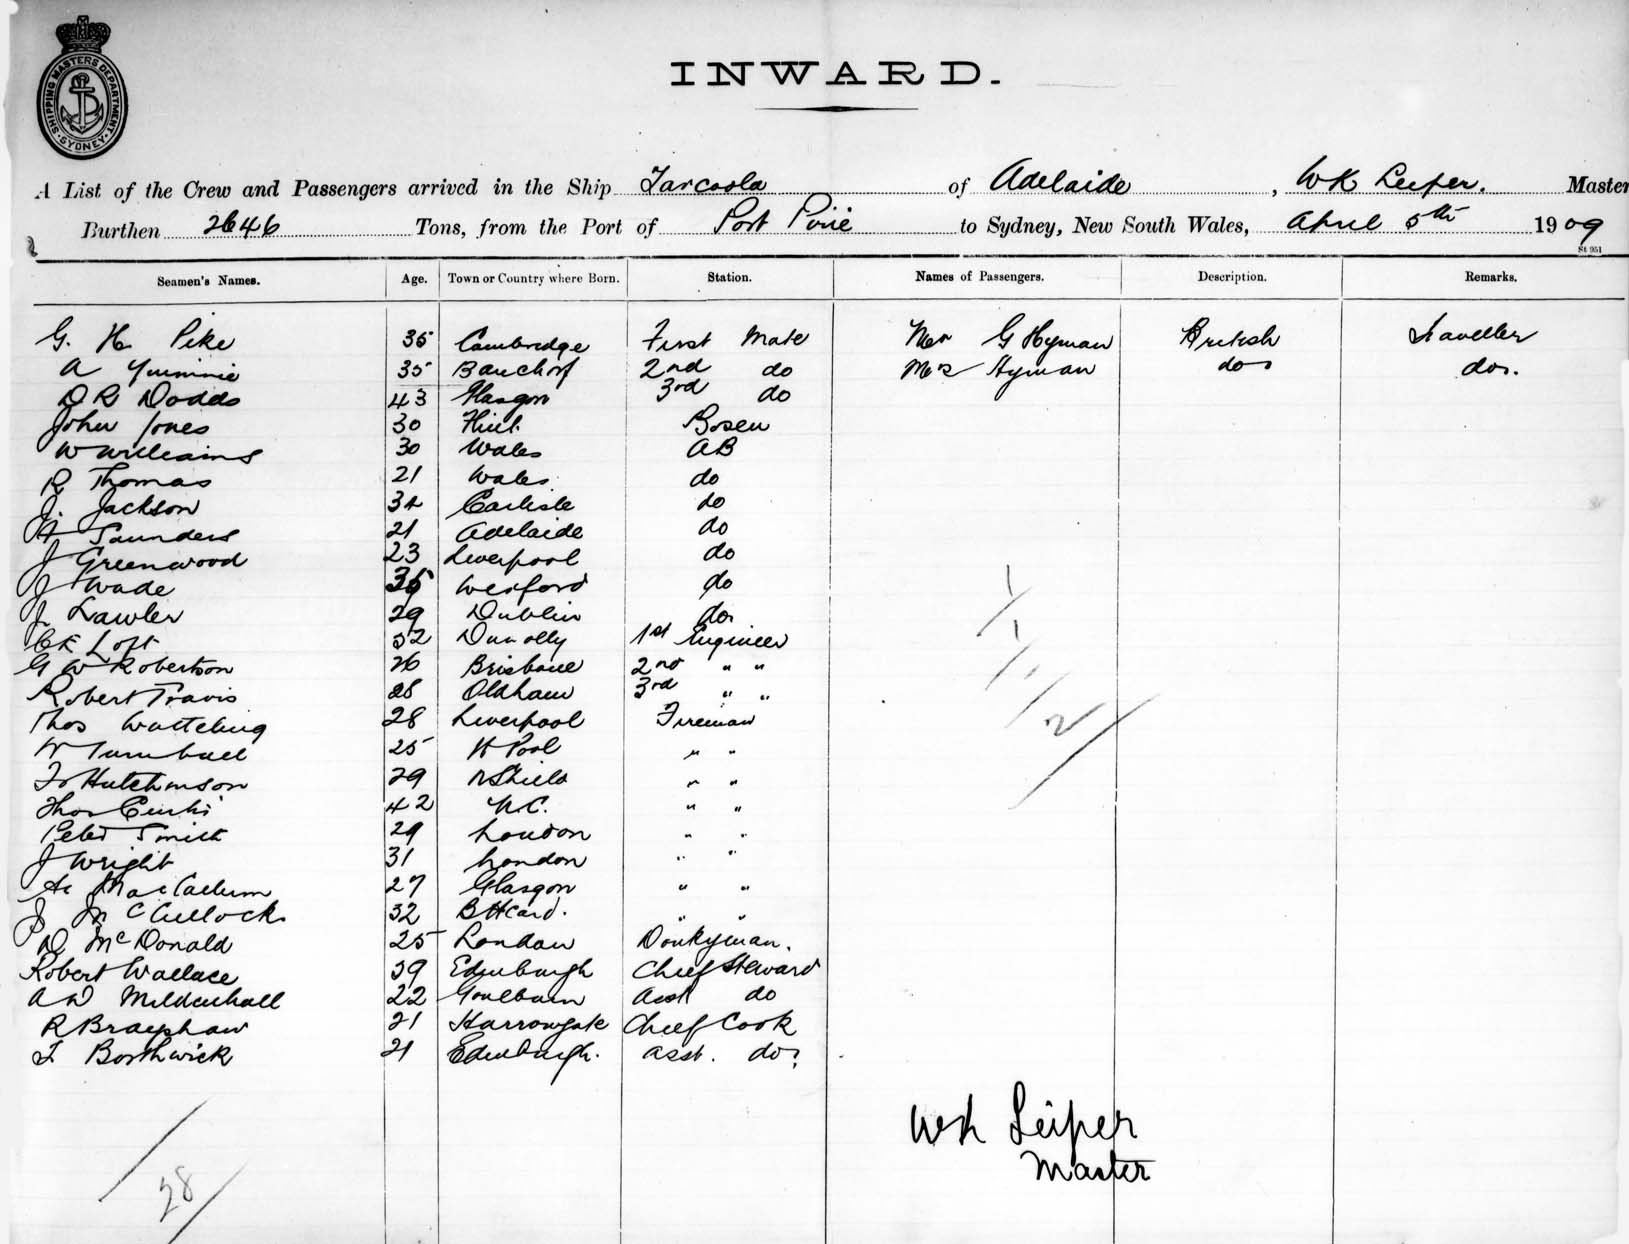 SHIPPING MASTERS DEPARTMENT. SYDNEY.
INWARD.
A List of the Crew and Passengers arrived in the Ship Tarcoola of Adelaide, WK Leiper. Master
Burthen 2646 Tons, from the Port of Port Pirie to Sydney, New South Wales, April 5th 1909
St 951
Seamen's Names. Age. Town or Country where Born. Station. Names of Passengers. Description. Remarks.
G. H. Pike 35 Cambridge First Mate Mr G Hyman British Traveller
A 35 2nd do Mrs Hyman do do.
D R Dodds 43 Glasgow 3rd do
John Jones 30 Flint Bosen
W Williams 30 Wales AB
R Thomas 21 Wales do
J. Jackson 32 Carlisle do
H Saunders 21 Adelaide do
J Greenwood 23 Liverpool do
J Wade 35 Wexford do
J. Lawler 29 Dublin do
Loft 32 Dunolly 1st Engineer
G W Robertson 26 Brisbane 2nd " "
Robert Travis 28 Oldham 3rd " "
Thos 28 Liverpool Fireman
W Turnbull 25 H Pool " "
Hutchinson 29 N Shields " "
Thos Curtis 42 N.C. " "
Peter Smith 29 London " "
J Wright 31 London " "
MacCallum 27 Glasgow " "
J McCullock 32 " "
D McDonald 25 London Donkyman.
Robert Wallace 39 Edinburgh Chief Steward
A W Mildenhall 22 Goulburn Asst do
R Brayshaw 21 Harrowgate Chief Cook
F Borthwick 21 Edinburgh. asst. do
WK Leiper
Master
28